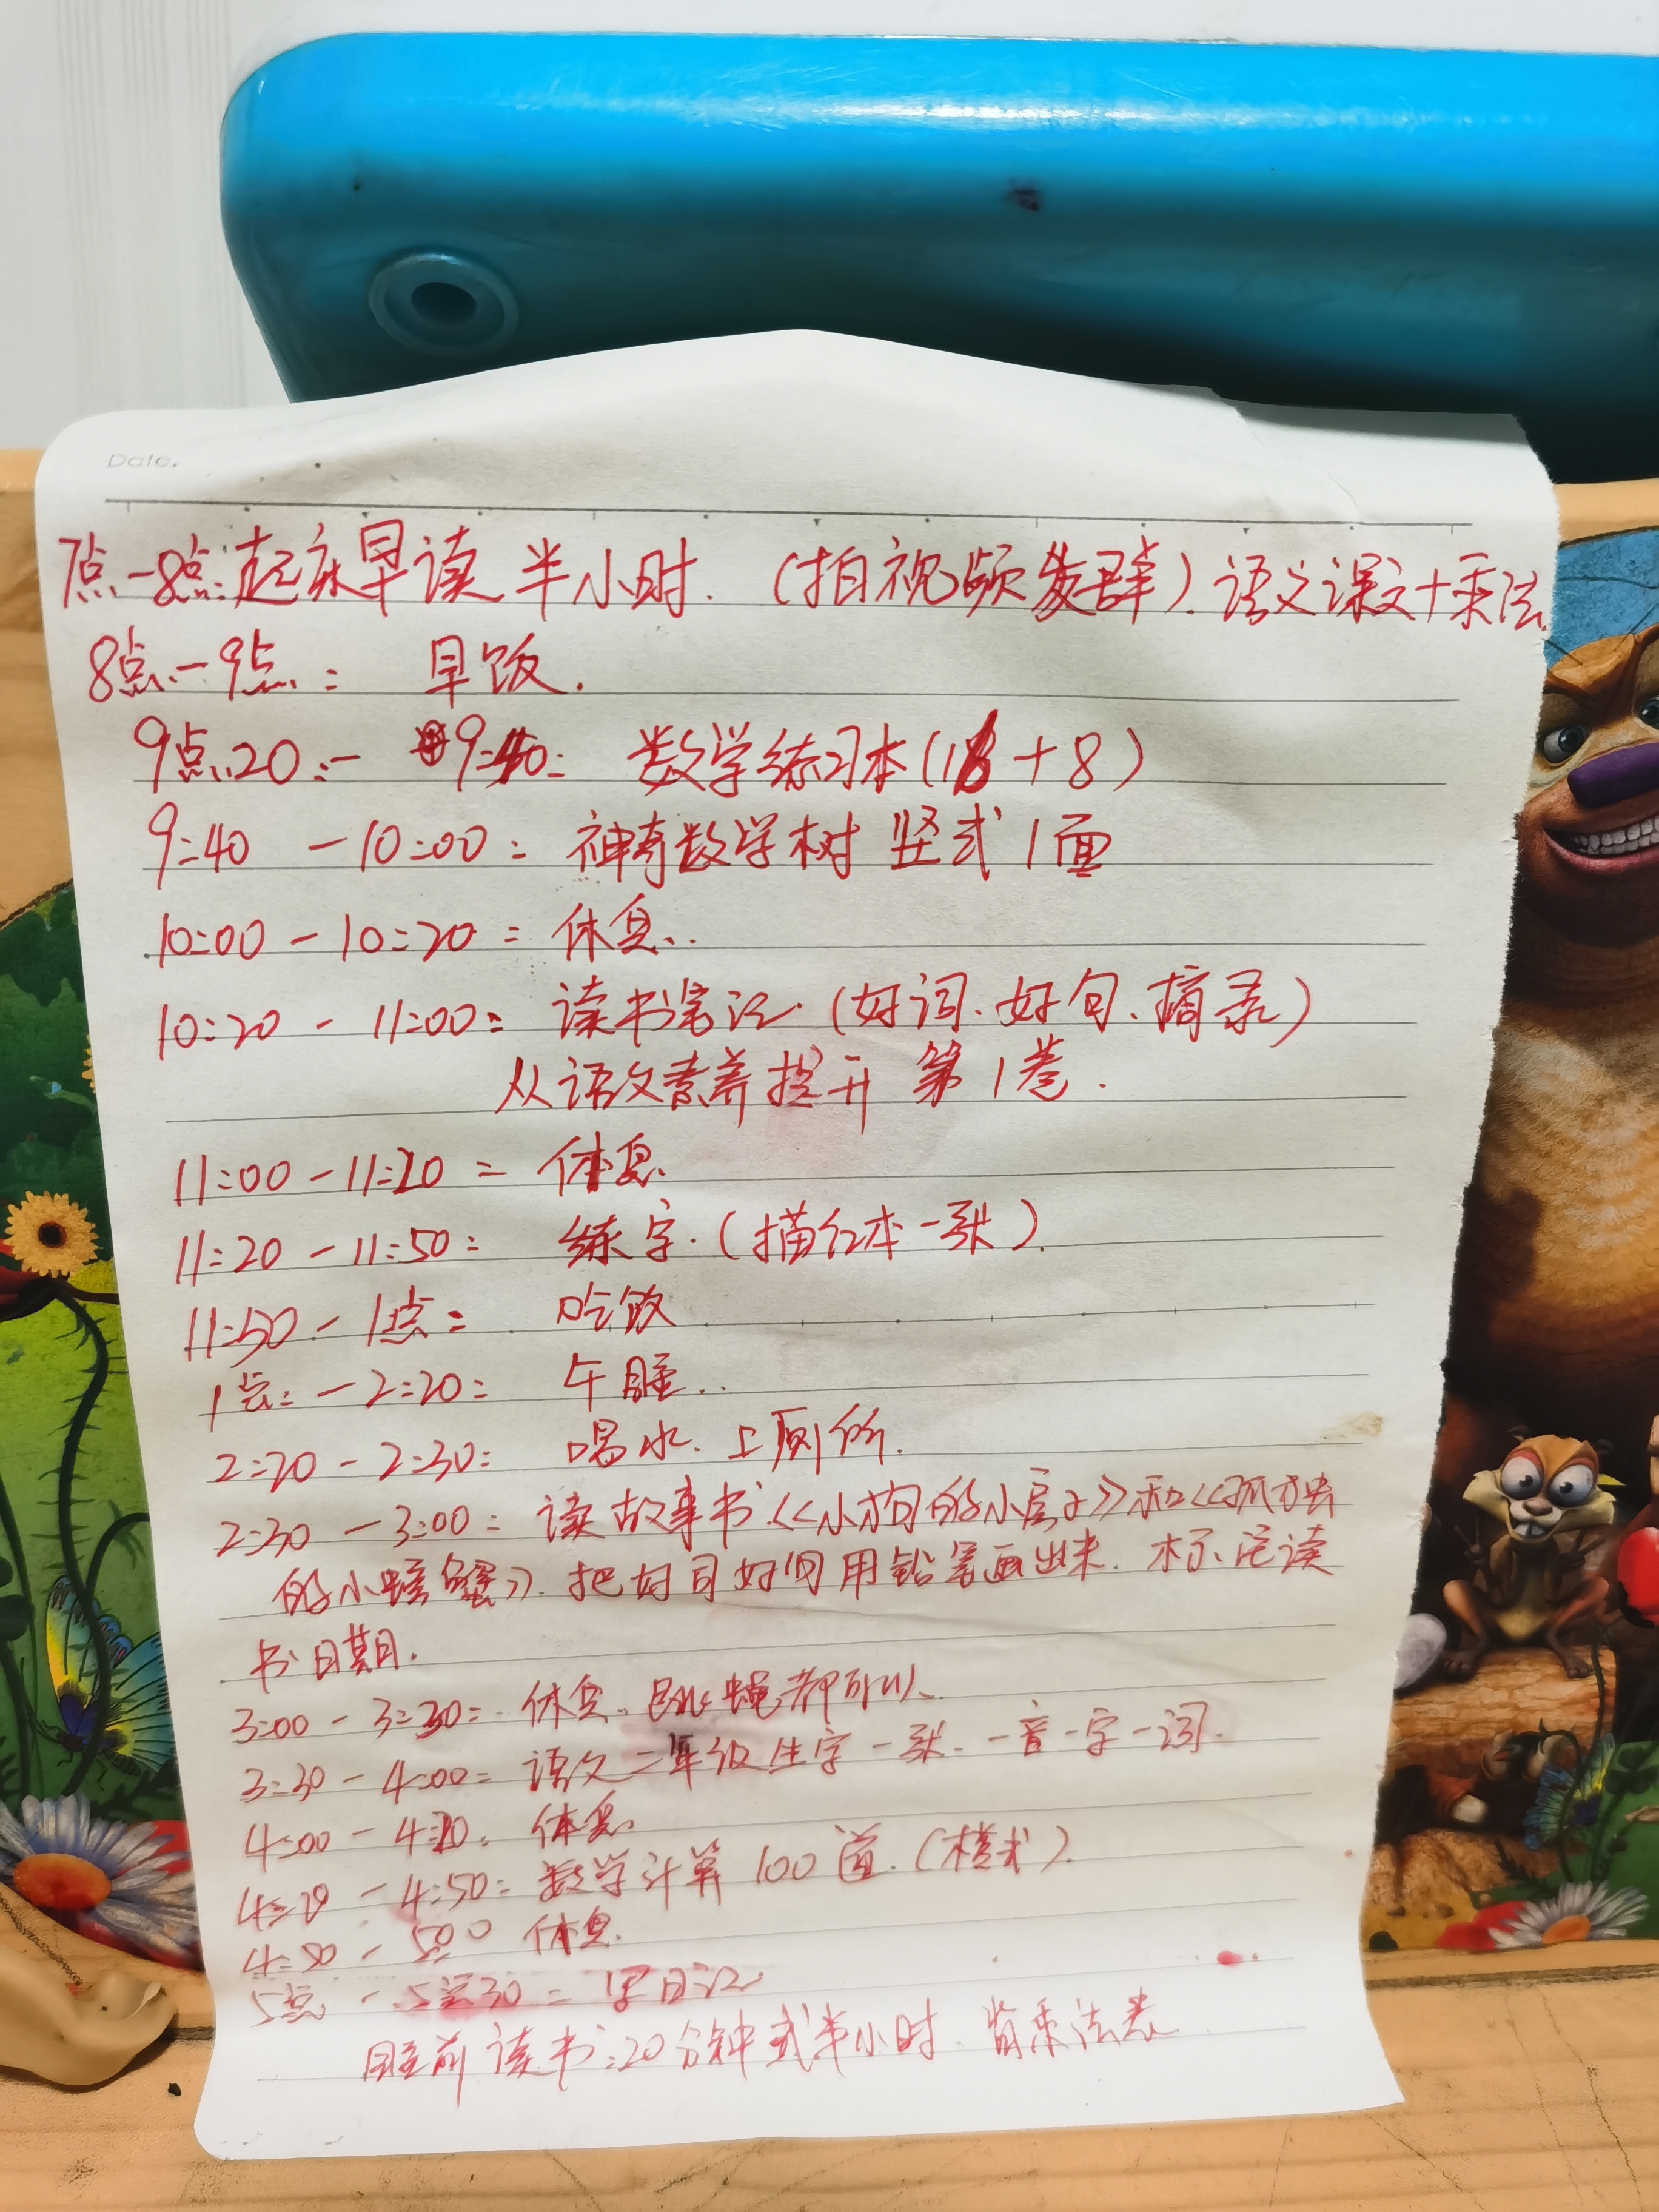 Date.
7点-8点:起床早读半小时.(拍视频发群).语文课文+乘法
8点-9点: 早饭.
9点20:- 9:40: 数学练习本( +8)
9:40 -10:00: 神奇数学树 竖式1面
10:00 - 10:20: 休息..
10:20 - 11:00: 读书笔记.(好词.好句.摘录)
从语文素养提升 第1卷.
11:00-11:20: 休息.
11:20-11:50: 练字.(描红本一张).
11:50-1点: 吃饭
1点:-2:20: 午睡..
2:20-2:30: 喝水.上厕所.
2:30-3:00: 读故事书《小狗的小房子》和《孤独
的小螃蟹》.把好句用铅笔画出来.标记读
书日期.
3:00-3:30: 休息.跳绳都可以.
3:30-4:00: 语文二年级生字一张.一音一字一词.
4:00-4:20. 休息.
4:20-4:50: 数学计算100道.(横式).
4:50-5:00 休息.
5点-5点30: 写日记
睡前读书:20分钟或半小时.背乘法表